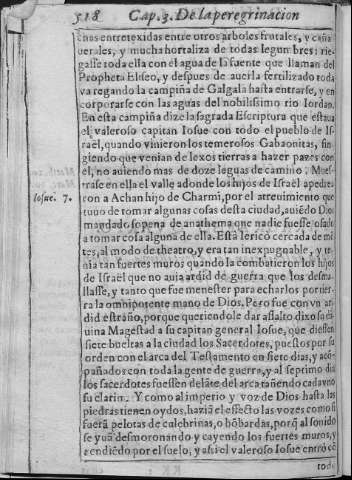 518 Cap. 3. De la peregrinacion
chas entretexidas entre otros arboles frutales, y caña
uerales, y mucha hortaliza de todas legumbres: rie-
gasse toda ella con el agua de la fuente que llaman del
Propheta Eliseo, y despues de auerla fertilizado toda
va regando la campiña de Galgala hasta entrarse, y en
corporarse con las aguas del nobilissimo rio Iordan.
En esta campiña dize la sagrada Escriptura que estaua
el valeroso capitan Iosue con todo el pueblo de Is-
rael, quando vinieron los temerosos Gabaonitas, fin-
giendo que venian de lexos tierras a hazer pazes con
el, no auiendo mas de doze leguas de camino. Mues-
trase en ella el valle adonde los hijos de Israel apedrea-
Iosue. 7. ron a Achan hijo de Charmi, por el atreuimiento que
tuuo de tomar algunas cosas desta ciudad, auiēdo Dios
mandado so pena de anathema que nadie fuesse osado
a tomar cosa alguna de ella. Està Iericò cercada de mō
tes, al modo de theatro, y era tan inexpugnable, y te-
nia tan fuertes muros quando la combatieron los hijos
de Israel que no auia ardid de guerra que los desma-
llasse, y tanto que fue menester para echarlos por tier-
ra la omnipotente mano de Dios. Pero fue con vn ar-
did estraño, porque queriendole dar assalto dixo su di-
uina Magestad a su capitan general Iosue, que diessen
siete bueltas a la ciudad los Sacerdotes, puestos por su
orden con el arca del Testamento en siete dias, y acō-
pañados con toda la gente de guerra, y al septimo dia
los sacerdotes fuessen delāte del arca tañendo cada vno
su clarin. Y como al imperio y voz de Dios hasta las
piedras tienen oydos, haziā el effecto las vozes como si
fuerā pelotas de culebrinas, o bōbardas, porq̃ al sonido
se yuā desmoronando y cayendo los fuertes muros, y
tendiēdo por el suelo, y assi el valeroso Iosue entrò cō
toda